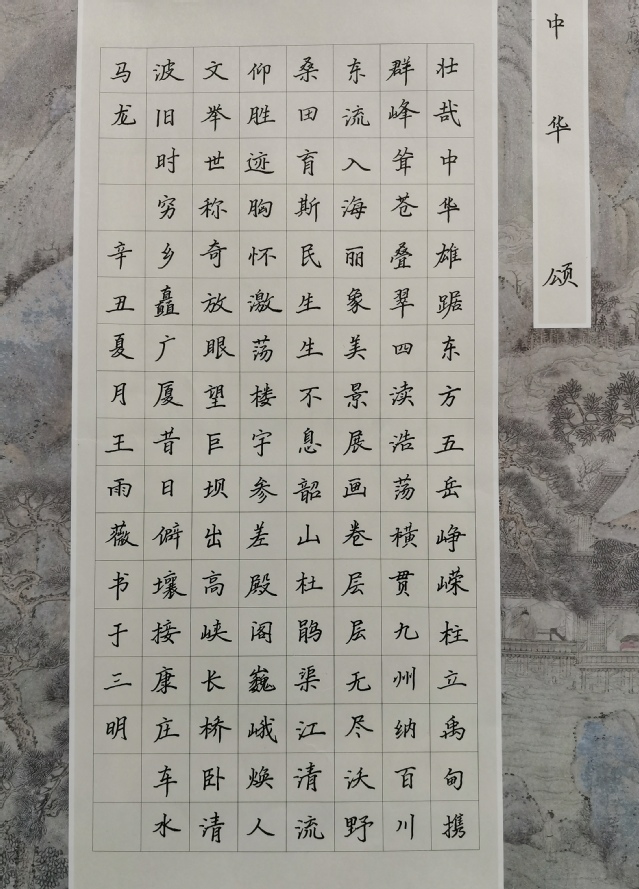 中华颂
壮哉中华雄踞东方五岳峥嵘柱立禹甸携
群峰耸苍叠翠四渎浩荡横贯九州纳百川
东流入海丽象美景展画卷层层无尽沃野
桑田育斯民生生不息韶山杜鹃渠江清流
仰胜迹胸怀激荡楼宇参差殿阁巍峨焕人
文举世称奇放眼望巨坝出高峡长桥卧清
波旧时穷乡矗广厦昔日僻壤接康庄车水
马龙 辛丑夏月王雨薇书于三明